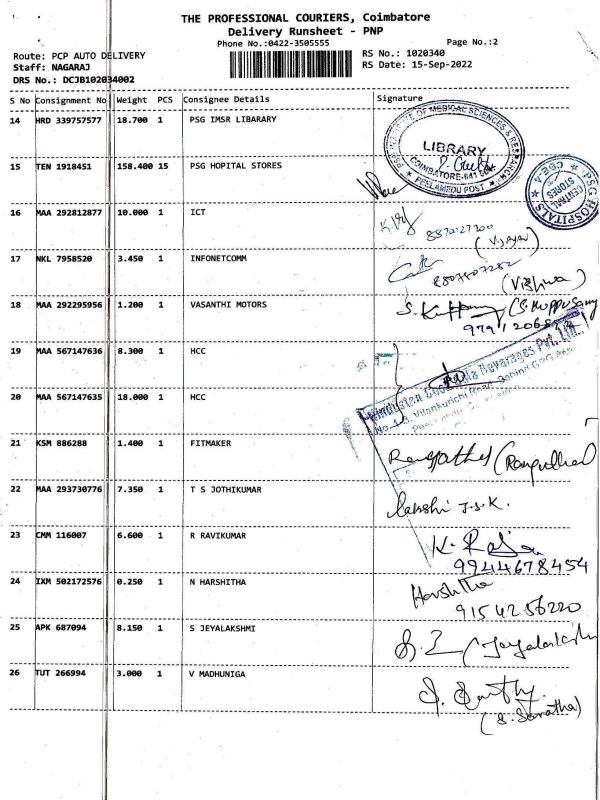 THE PROFESSIONAL COURIERS, Coimbatore
Delivery Runsheet - PNP
Phone No.:0422-3505555 Page No.:2
Route: PCP AUTO DELIVERY RS No.: 1020340
Staff: NAGARAJ RS Date: 15-Sep-2022
DRS No.: DCJB102034002
S No Consignment No Weight PCS Consignee Details Signature
14 HRD 339757577 18.700 1 PSG IMSR LIBARARY
INSTITUTE OF MEDICAL SCIENCES & RESEARCH
LIBRARY
COIMBATORE-641 004
PEELAMEDU POST
15 TEN 1918451 158.400 15 PSG HOPITAL STORES
PSG HOSPITALS
CENTRAL
STORES
CBE-4
16 MAA 292812877 10.000 1 ICT
8870127200
(Vijayan)
17 NKL 7958520 3.450 1 INFONETCOMM
(Vishwa)
18 MAA 292295956 1.200 1 VASANTHI MOTORS
(S.Kuppusamy
19 MAA 567147636 8.300 1 HCC
Hindustan Coca-Cola Beverages Pvt. Ltd.
20 MAA 567147635 18.000 1 HCC
Vilankurichi Road, Behind
21 KSM 886288 1.400 1 FITMAKER
22 MAA 293730776 7.350 1 T S JOTHIKUMAR
J.S.K.
23 CMM 116007 6.600 1 R RAVIKUMAR
K. Raja
9944678454
24 IXM 502172576 0.250 1 N HARSHITHA
Harshitha
9154256220
25 APK 687094 8.150 1 S JEYALAKSHMI
26 TUT 266994 3.000 1 V MADHUNIGA
(S. Saratha)